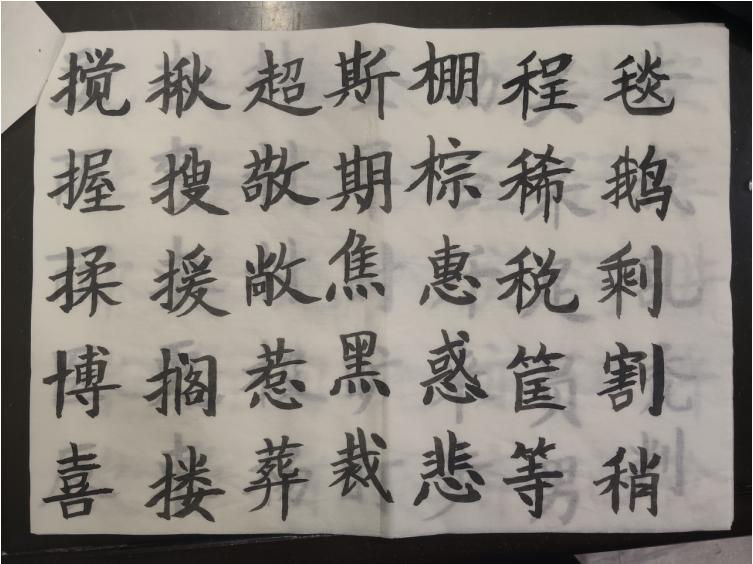 搅揪超斯棚程毯
握搜敬期棕稀鹅
揉援敞焦惠税剩
博搁惹黑惑筐割
喜搂葬裁悲等稍